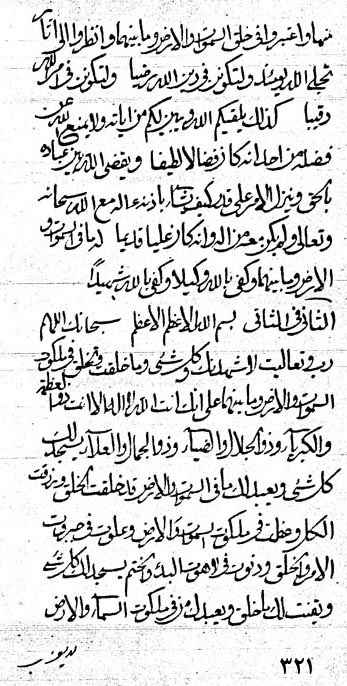 منها واعبروا في خلق السموات والارض وما بينهما وانظروا الى
تجلي الله ولتكونن في دين الله رضيا ولتكونن في امر الله
رقيبا كذلك الله ويبين لكم من اياته ولا يمنع الله عن
فضله من احد انه كان فضالا لطيفا ويقضي الله بين عباده
بالحق وينزل الامر على قدر كيف يشاء باذنه مع الله سبحانه
وتعالى ولم يكن معه من اله وانه كان عليا قديما له ما في السموات و
الارض وما بينهما وكفى بالله وكيلا وكفى بالله شهيدا
الثاني في الثاني بسم الله الاعظم الاعظم سبحانك اللهم
رب وتعاليت لاشهدنك وكل شيء وما خلقت وتخلق في ملكوت
السموات والارض وما بينهما على انك انت الله لا اله الا انت ذو العظمة
والكبرياء وذو الجلال والضياء وذو الجمال والعلاء يسجد لك
كل شيء ويعبد لك ما في السموات والارض قد خلقت الخلق ورزقت
الكل في ملكوت السموات والارض وعلوت في جبروت
الامر والخلق ودنوت في لاهوت البدء والختم يسجد لك كل شيء
ويقنت لك ما خلق ويعبدك من في ملكوت السماء والارض
٣٢١